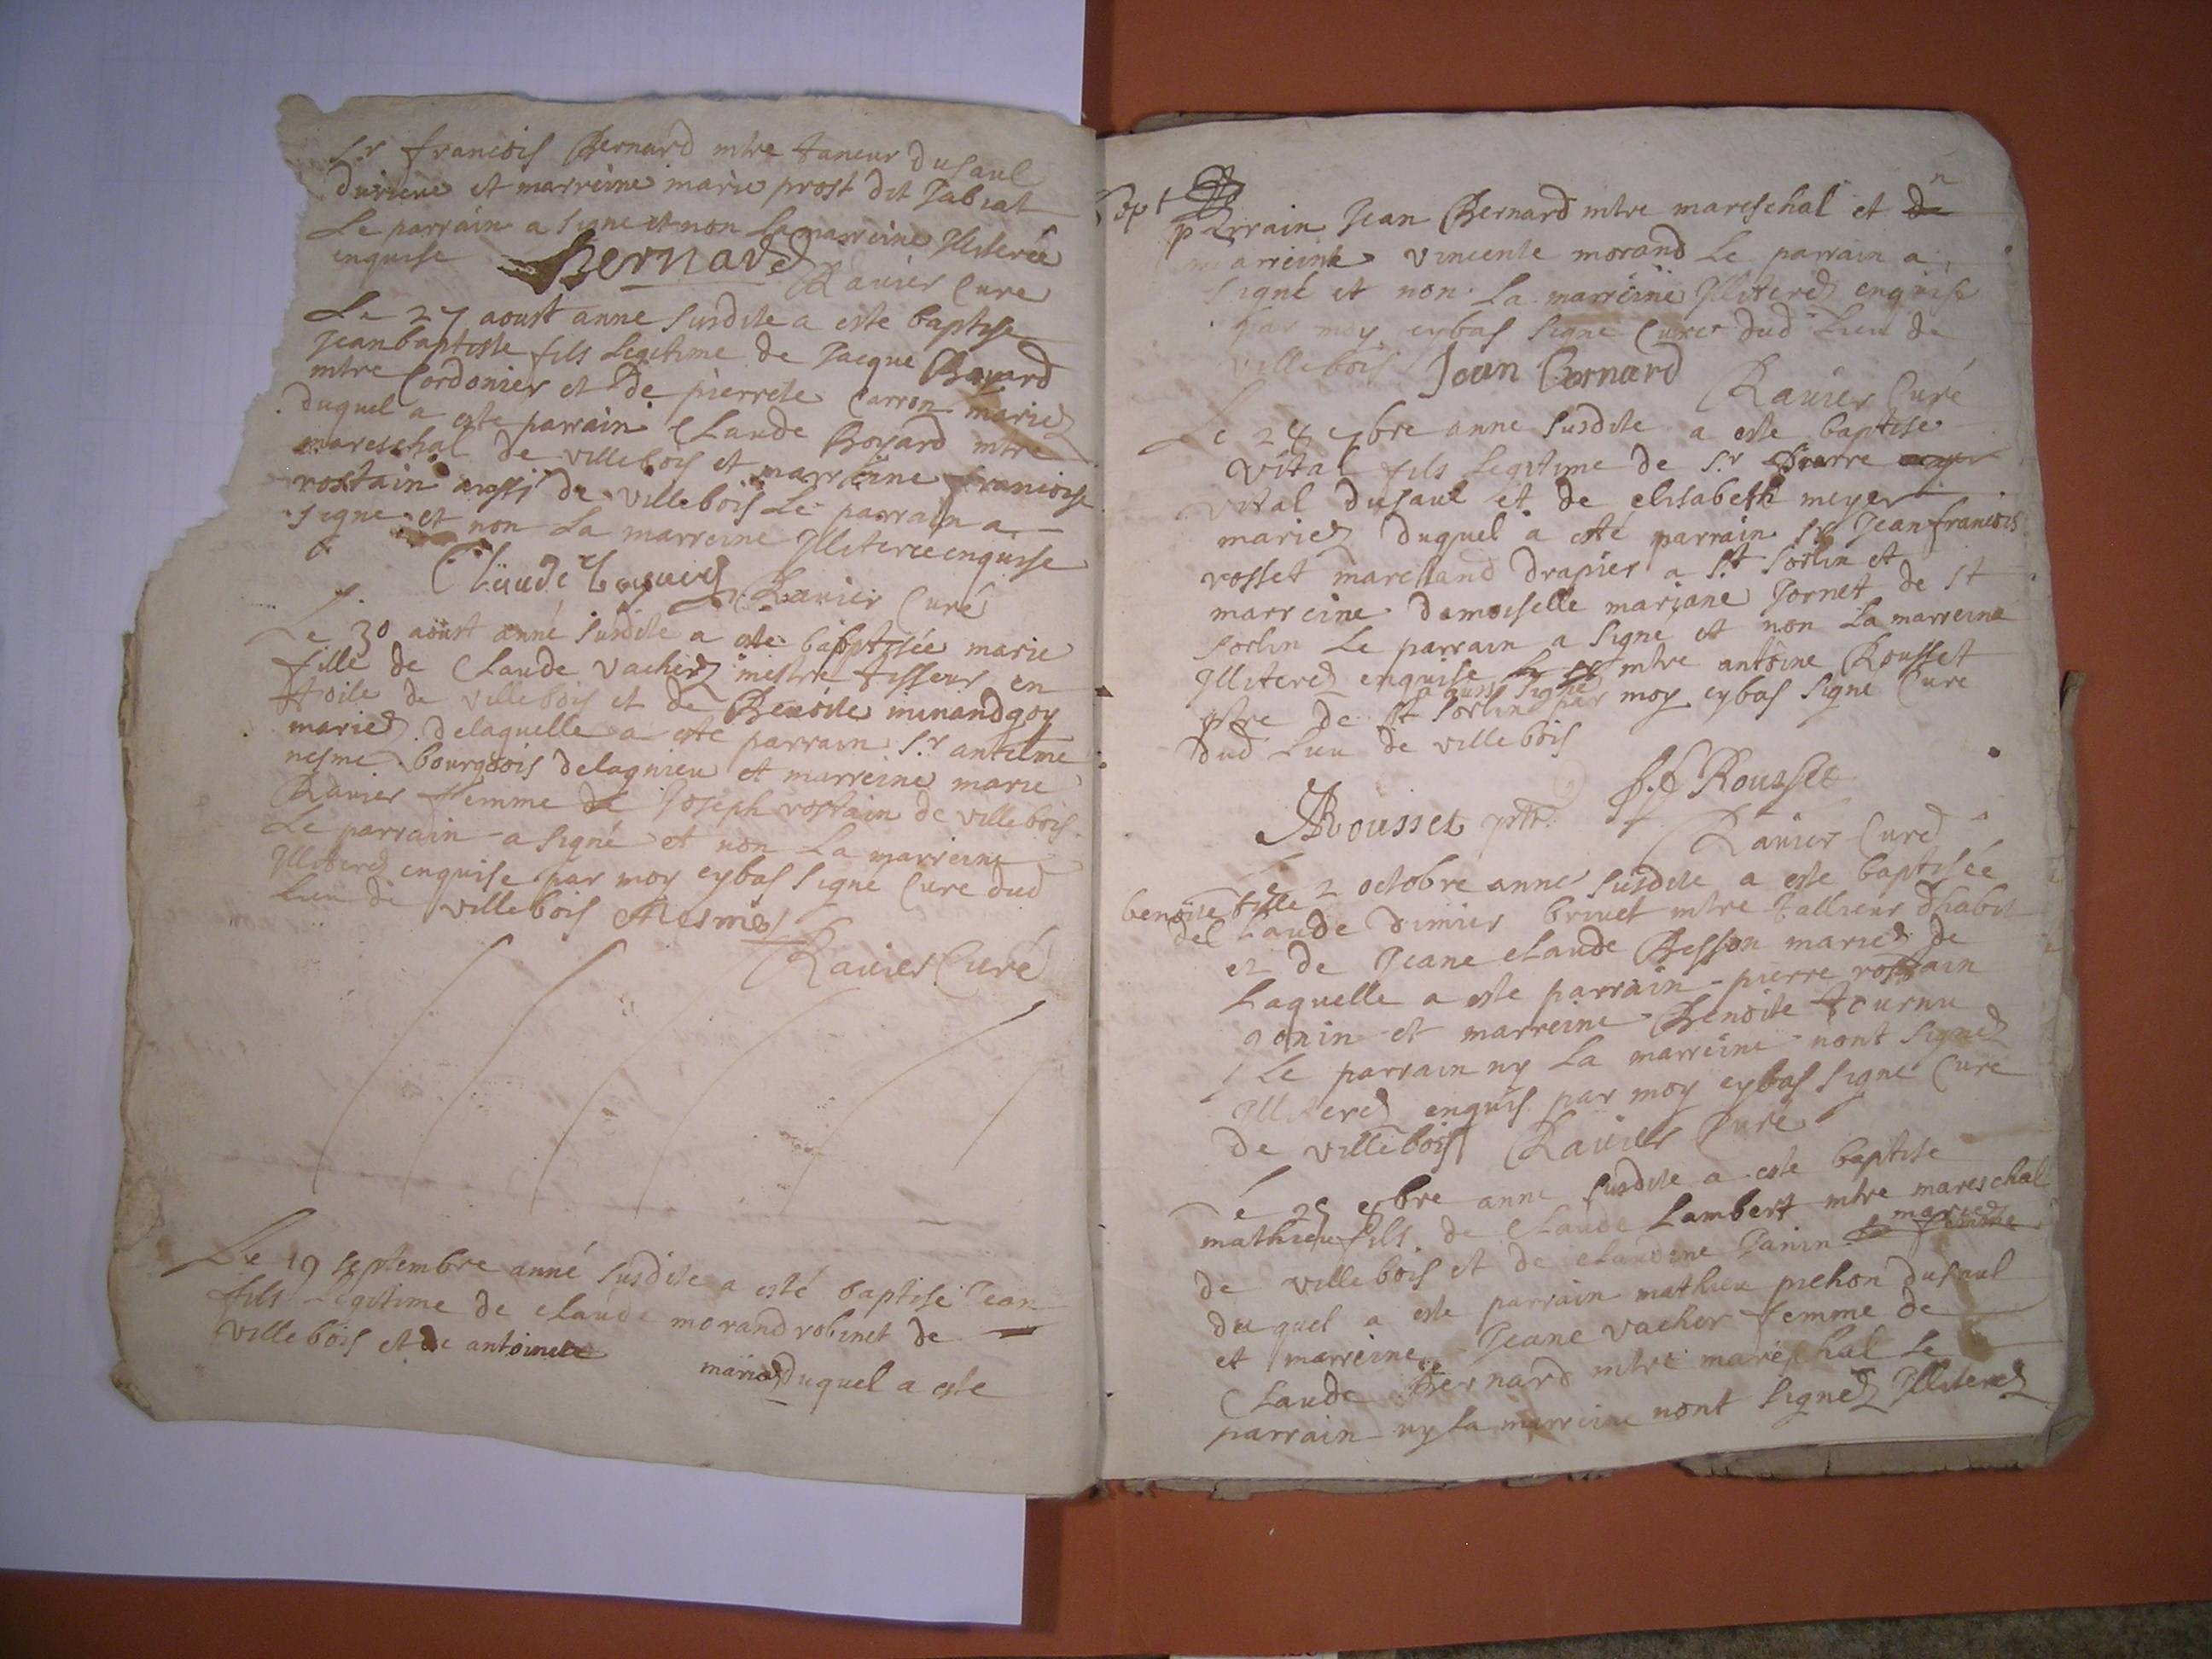 Sr francois Bernard mtre taneur dusaul
durieue et marreine marie prost dit Jabrat
Le parrain a signe et non Lamarreine Illiterée
enquise Bernard
Ravier Cure
Le 27 aoust anne susdite a este baptise
Jeanbaptiste fils Legitime de Jacque Boyard
mtre Cordonier et de pierrete Carron mariez
duquel a este parrain Claude Boyard mtre
mareschal de villebois et marreine francoise
rostain aussi de villebois Le parrain a
signe et non La marreine Illiteree enquise
Claude boyard Ravier Curé
Le 30 aoust anné susdite a este babptisée marie
fille de Claude vacher mestre tisseur en
toile de villebois et de Benoite minandgoy
mariez delaquelle a este parrain Sr antelme
nesme bourgois delagnieu et marreine marie
Ravier femme de Joseph rostain de villebois
Le parrain a signé et non La marreine
Illiteré enquise par moy cybas signé Cure dud
Lieu de villebois Nesme
Ravier Curé
Le 19 septembre anné susdite a esté baptisé Jean
fils Legitime de claude morand robinet de
villebois et de antoinete
mariez duquel a este
sept
parrain Jean Bernard mtre mareschal et
marreine vincente morand Le parrain a
signé et non La marreine Illiteré enquise
par moy cybas signe Curé dud Lieu de
villebois Jean Bernard
Ravier Curé
Le 28 7bre anne susdite a este baptise
vital fils Legitime de Sr pierre
vital dusaul et de elisabeth meyer
mariez duquel a esté parrain Sr Jeanfrancois
rosset marchand drapier a St Sorlin et
marreine damoiselle mariane Jornet de St
Sorlin Le parrain a signé et non La marreine
Illiteré enquise mtre antoine Rousset
a aussi signé
pstre de St Sorlin par moy cybas signe Cure
dud Lieu de villebois
J.f Rousset
ARousset pstre
Ravier Curé
Le 2 octobre anne susdite a este baptisée
benoite fille
de Claude dimier brivet mtre tallieur dhabit
et de Jeane claude Besson mariez de
Laquelle a este parrain pierre rostain
gonin et marreine Benoite tournu
Le parrain ny La marreine nont signez
Illiterez enquis par moy cybas signe Cure
de villebois Ravier Curé
Le 25 8bre anne susdite a este baptise
mathieu fils de Claude Lambert mtre mareschal
mariez
de villebois et de claudine Janin sa femme
duquel a este parrain mathieu pichon dusaul
et marreine Jeane vacher femme de
Claude Bernard mtre mareschal Le
parrain ny La marreine nont signez Illiterez